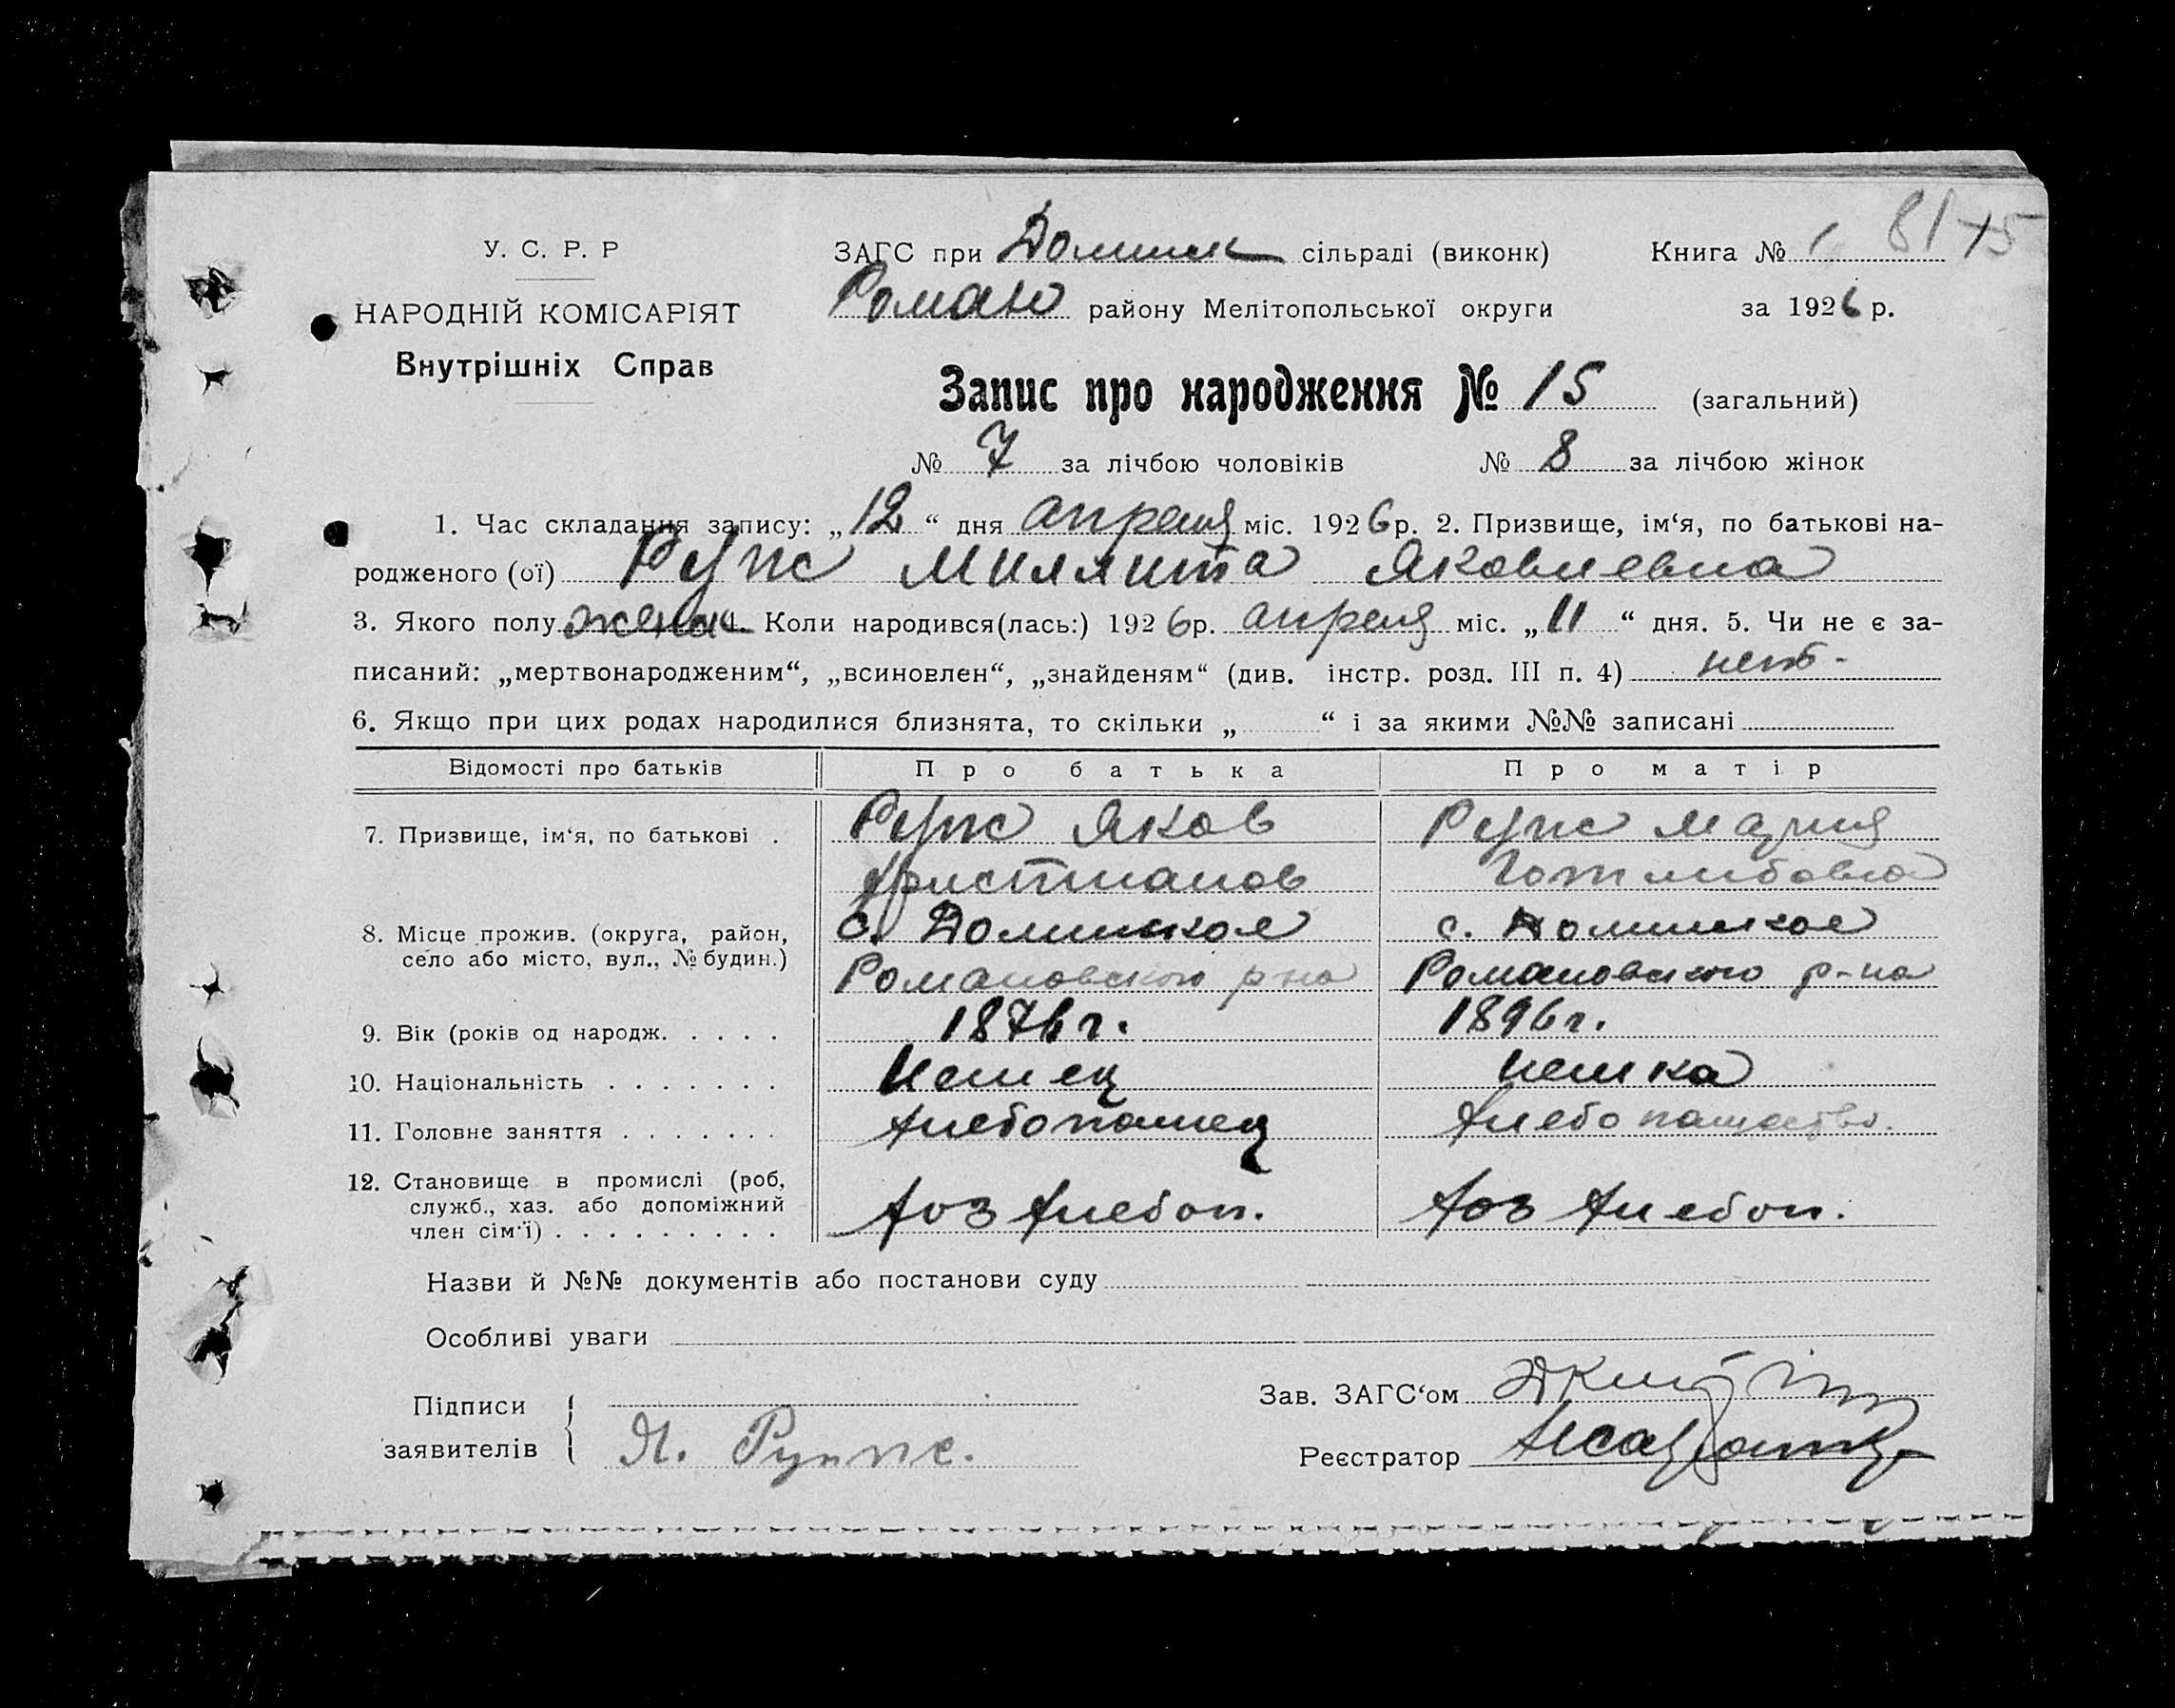 У. С. Р. Р
НАРОДНІЙ КОМІСАРІЯТ
Внутрішніх Справ
ЗАГС при Долинск сільраді (виконк)
Роман району Мелітопольської округи
Книга № 1 81 15
за 1926 р.
Запис про народження № 15 (загальний)
№ 7 за лічбою чоловіків № 8 за лічбою жінок
1. Час складання запису: „12“ дня апреля міс. 1926 р. 2. Призвище, ім‘я, по батькові на-
родженого (ої) Рупс Миллита Яковлевна
3. Якого полу женск 4. Коли народився(лась:) 1926 р. апреля міс. „11“ дня. 5. Чи не є за-
писаний: „мертвонародженим“, „всиновлен“, „знайденям“ (див. інстр. розд. III п. 4) нет.
6. Якщо при цих родах народилися близнята, то скільки „ “ і за якими №№ записані
Відомості про батьків Про батька Про матір
7. Призвище, ім‘я, по батькові . Рупс Яков Рупс Мария
Христианов Готлибовна
8. Місце прожив. (округа, район, село або місто, вул., № будин.) с. Долинское с. Долинское
Романовского р-на Романовского р-на
9. Вік (років од народж. . . . . 1876 г. 1896 г.
10. Національність . . . . . . . Немец Немка
11. Головне заняття . . . . . . . Хлебопашец Хлебопашество.
12. Становище в промислі (роб,
служб., хаз. або допоміжний Хоз Хлебоп. Хоз Хлебоп.
член сім‘ї) . . . . . . . . .
Назви й №№ документів або постанови суду
Особливі уваги
Підписи
заявителів Я. Руппс.
Зав. ЗАГС‘ом
Реєстратор